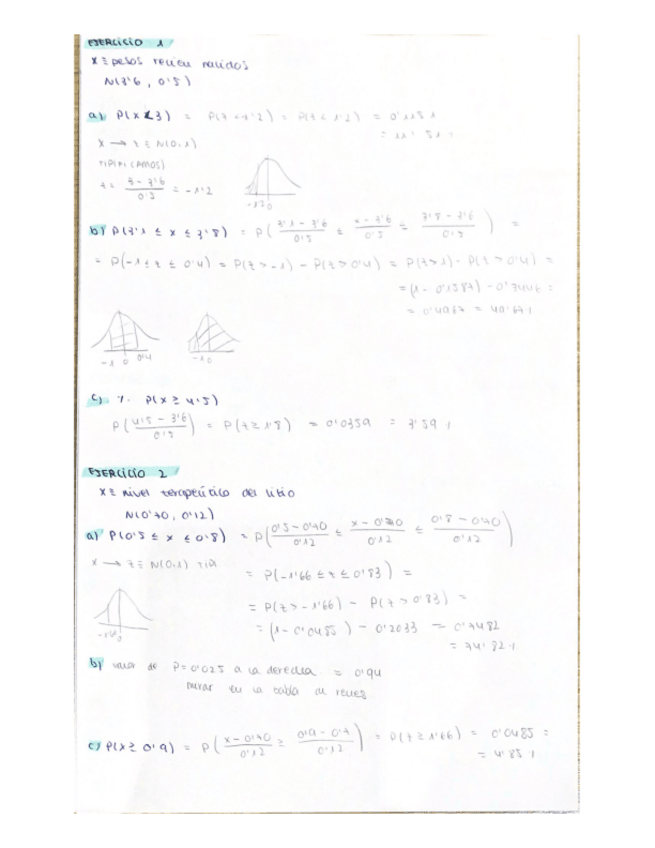 EJERCICIO 1
X ≡ pesos recien nacidos
N(3'6, 0'5)
a) P(X<3) = P(z <-1'2) = P(z < 1'2) = 0'1151
= 11'51%
X → z ≡ N(0,1)
TIPIFICAMOS
z = 3-3'6 / 0'5 = -1'2
-1'2 0
b) P(3'1 ≤ x ≤ 3'8) = P( 3'1-3'6 / 0'5 ≤ x-3'6 / 0'5 ≤ 3'8-3'6 / 0'5 ) =
= P(-1 ≤ z ≤ 0'4) = P(z>-1) - P(z>0'4) = P(z>1) - P(z>0'4) =
= (1-0'1587) - 0'3446 =
= 0'4967 = 49'67%
-1 0 0'4 -1 0
c) %. P(X ≥ 4'5)
P( 4'5-3'6 / 0'5 ) = P(z ≥ 1'8) = 0'0359 = 3'59%
EJERCICIO 2
X ≡ nivel terapeútico del litio
N(0'70, 0'12)
a) P(0'5 ≤ x ≤ 0'8) = P( 0'5-0'70 / 0'12 ≤ x-0'70 / 0'12 ≤ 0'8-0'70 / 0'12 )
X → z ≡ N(0,1)
= P(-1'66 ≤ z ≤ 0'83) =
= P(z>-1'66) - P(z>0'83) =
= (1-0'0485) - 0'2033 = 0'7482
= 74'82%
b) valor de P=0'025 a la derecha = 0'94
mirar en la tabla
c) P(X ≥ 0'9) = P( x-0'70 / 0'12 ≥ 0'9-0'7 / 0'12 ) = P(z ≥ 1'66) = 0'0485 =
= 4'85%